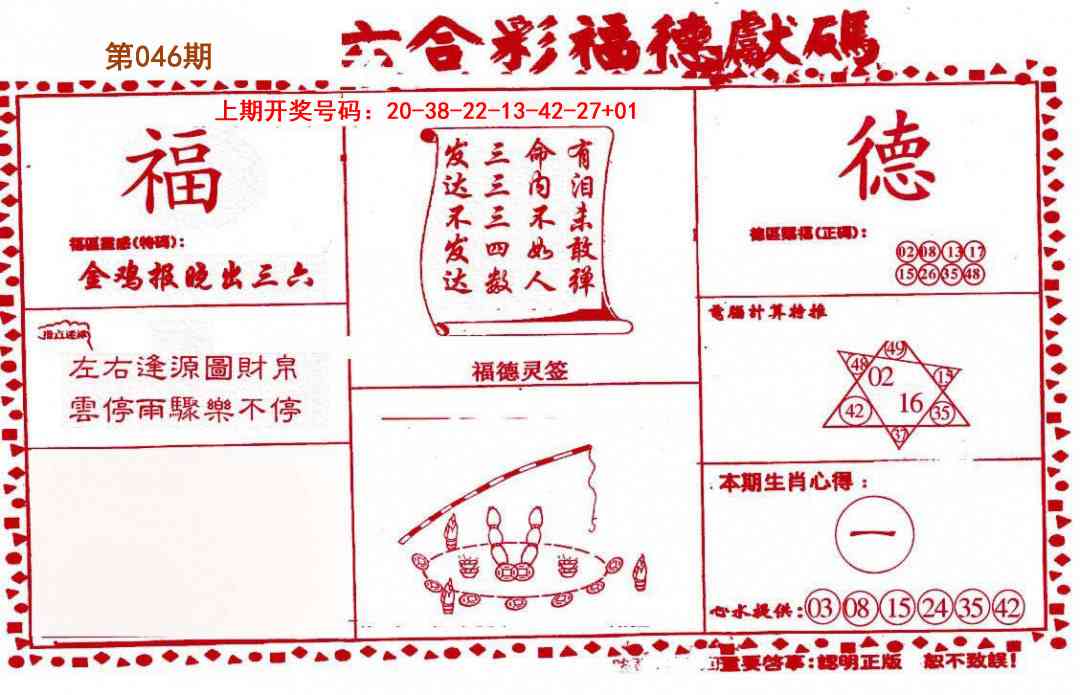 第046期
六合彩福德獻碼
上期开奖号码：20-38-22-13-42-27+01
福
福區靈感(特碼)：
金鸡报晚出三六
左右逢源圖財帛
雲停雨驟樂不停
有泪未敢弹
命内不如人
三三三四数
发达不发达
福德灵签
德
德區賜福(正碼)：
02 08 13 17
15 26 35 48
電腦計算特推
49
48 02 15
42 16 35
37
本期生肖心得：
一
心水提供：03 08 15 24 35 42
重要啓事：認明正版 恕不致誤！